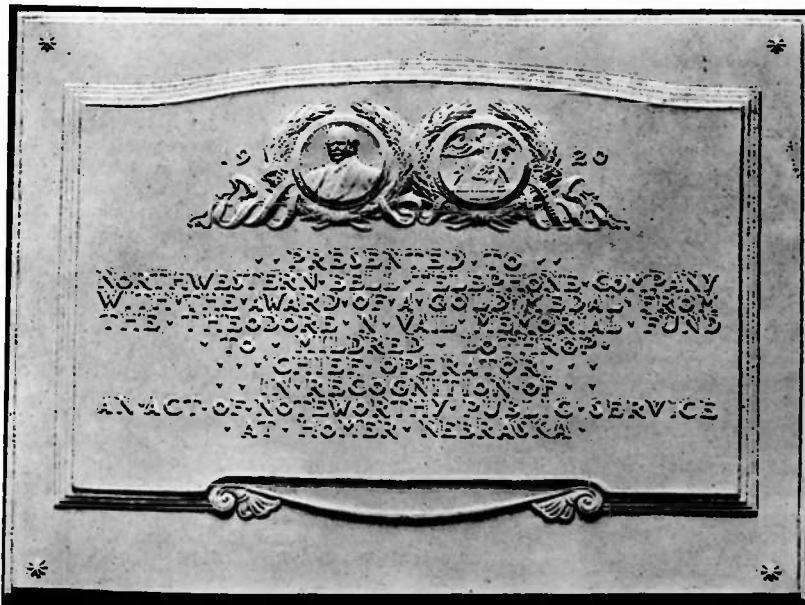 19 20
PRESENTED · TO
NORTHWESTERN · BELL · TELEPHONE · COMPANY
WITH · THE · AWARD · OF · A · GOLD · MEDAL · FROM
THE · THEODORE · N · VAIL · MEMORIAL · FUND
· TO · MILDRED · LOTHROP ·
CHIEF · OPERATOR
IN · RECOGNITION · OF
AN · ACT · OF · NOTEWORTHY · PUBLIC · SERVICE
· AT · HOMER · NEBRASKA ·